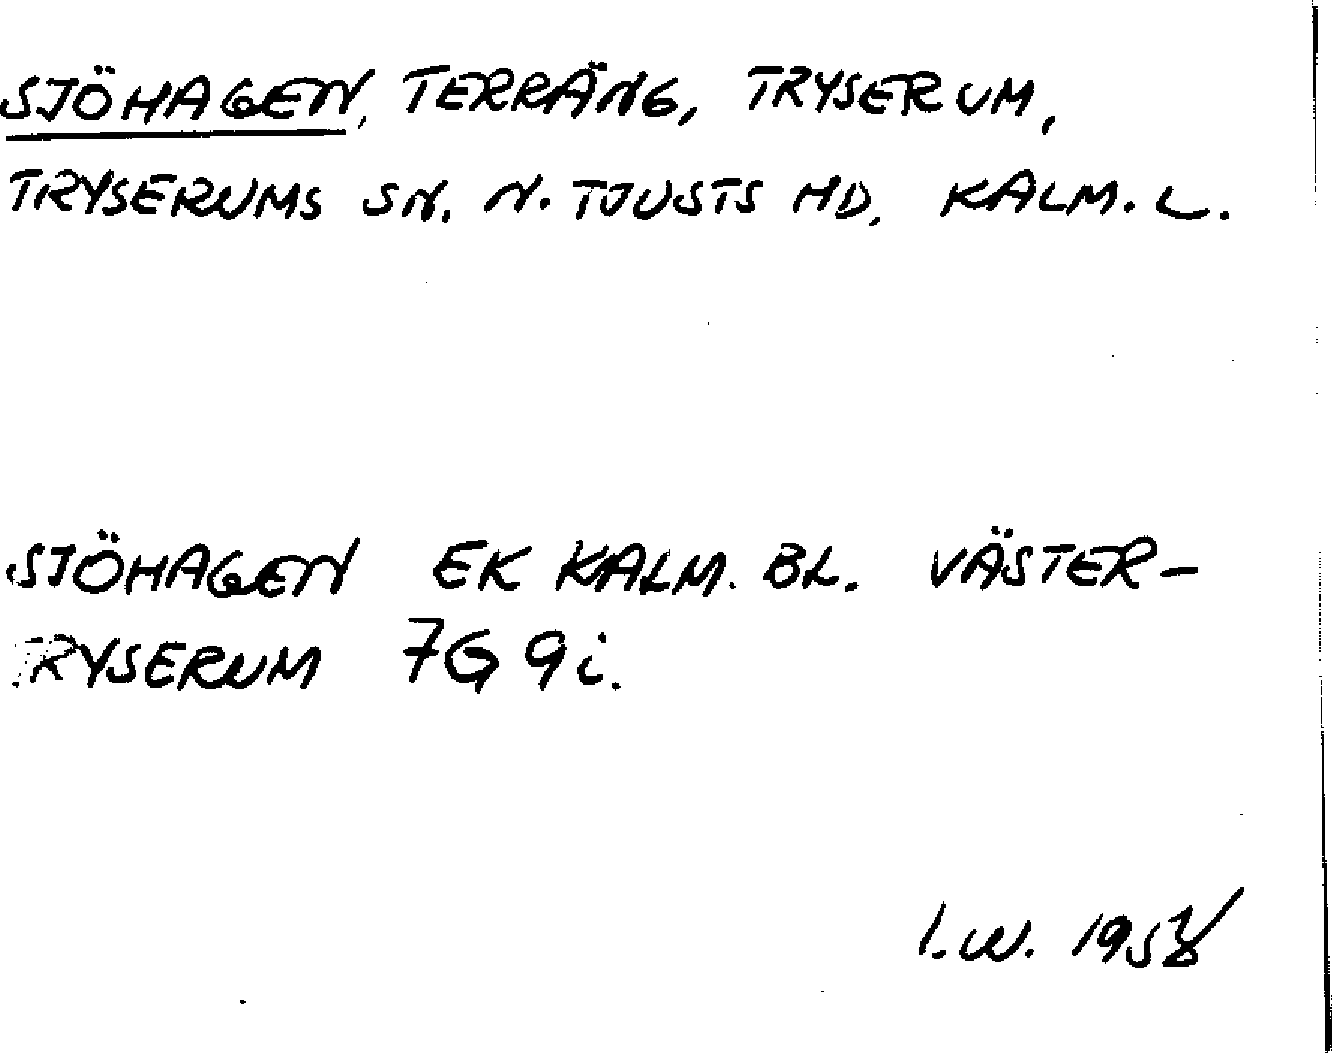 SJÖHAGEN, TERRÄNG, TRYSERUM,
TRYSERUMS SN. N. TJUSTS HD. KALM. L.
SJÖHAGEN EK KALM. BL. VÄSTER-
TRYSERUM 7G 9i.
I.W. 1958